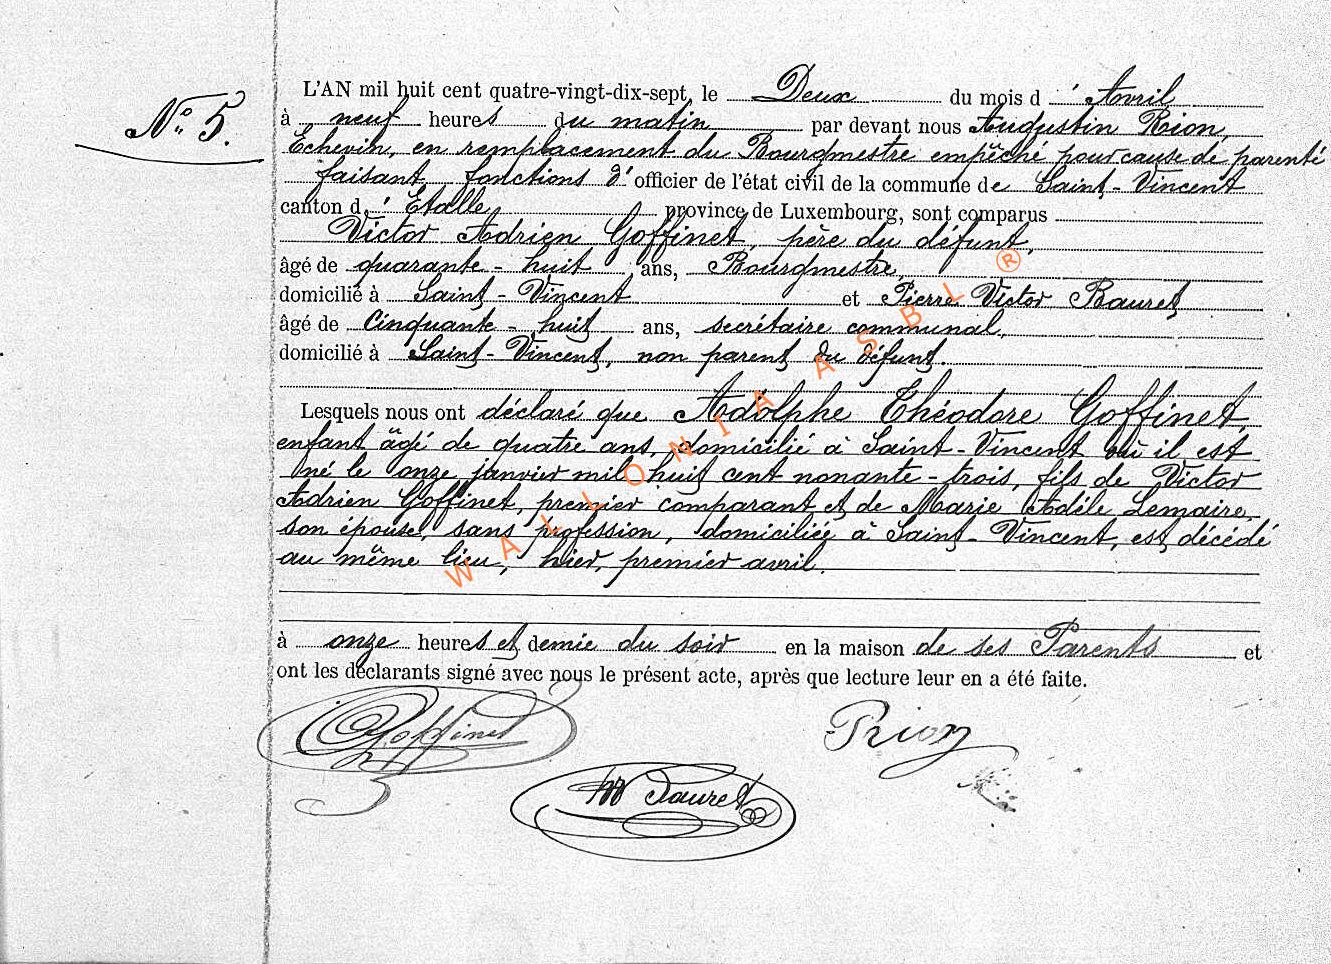 N° 5.
L'AN mil huit cent quatre-vingt-dix-sept, le Deux du mois d'Avril
à neuf heures du matin par devant nous Augustin Rion,
Echevin, en remplacement du Bourgmestre empêché pour cause de parenté
faisant fonctions d'officier de l'état civil de la commune de Saint-Vincent
canton d'Etalle province de Luxembourg, sont comparus
Victor Adrien Goffinet, père du défunt,
âgé de quarante-huit ans, Bourgmestre,
domicilié à Saint-Vincent et Pierre Victor Bauret
âgé de Cinquante-huit ans, secrétaire communal,
domicilié à Saint-Vincent, non parent du défunt.
Lesquels nous ont déclaré que Adolphe Théodore Goffinet,
enfant âgé de quatre ans, domicilié à Saint-Vincent où il est
né le onze janvier mil huit cent nonante-trois, fils de Victor
Adrien Goffinet, premier comparant et de Marie Adèle Lemaire,
son épouse, sans profession, domiciliée à Saint-Vincent, est décédé
au même lieu, hier, premier avril.
à onze heures et demie du soir en la maison de ses Parents et
ont les déclarants signé avec nous le présent acte, après que lecture leur en a été faite.
Goffinet
Rion
Bauret
WALLONIA ASBL ®